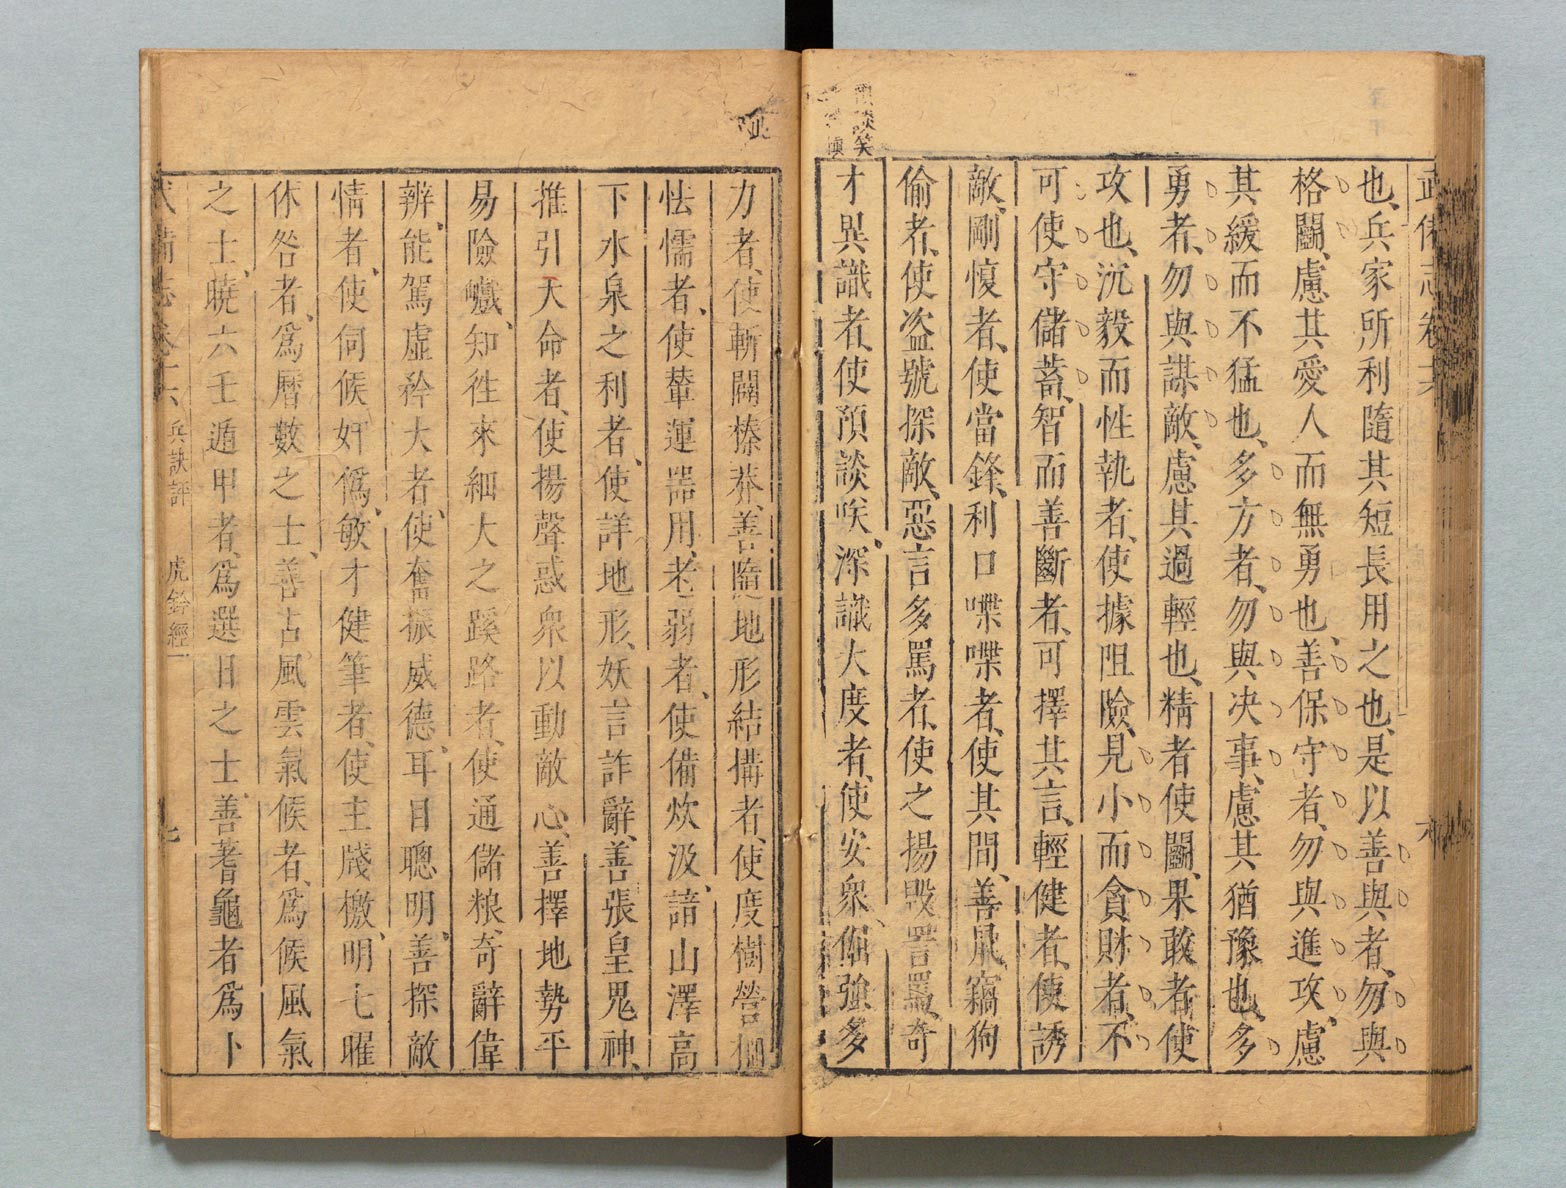 武備志卷十六
也、兵家所利隨其短長用之也、是以善與者、勿與
格鬭、慮其愛人而無勇也、善保守者、勿與進攻、慮
其緩而不猛也、多方者、勿與决事、慮其猶豫也、多
勇者、勿與謀敵、慮其過輕也、精者使鬭、果敢者使
攻也、沉毅而性執者、使據阻險、見小而貪財者、不
可使守儲蓄、智而善斷者、可擇其言、輕健者、使誘
敵、剛愎者、使當鋒、利口喋喋者、使其間、善鼠竊狗
偷者、使盗號探敵、惡言多罵者、使之揚毀詈罵、奇
才異識者、使預談咲、深識大度者、使安衆、倔強多
力者、使斬關榛莽、善隨地形結搆者、使度樹營栅
怯懦者、使輦運噐用、老弱者、使備炊汲、諳山澤高
下水泉之利者、使詳地形、妖言詐辭、善張皇鬼神、
推引天命者、使揚聲惑衆以動敵心、善擇地勢平
易險巇、知徃來細大之蹊路者、使通儲粮、奇辭偉
辨、能駕虛矜大者、使奮振威德、耳目聰明、善探敵
情者、使伺候奸僞、敏才健筆者、使主牋檄、明七曜
休咎者、爲曆數之士、善占風雲氣候者、爲候風氣
之士、曉六壬遁甲者、爲選日之士、善蓍龜者爲卜
武備志卷十六 兵訣評 虎鈐經一 七